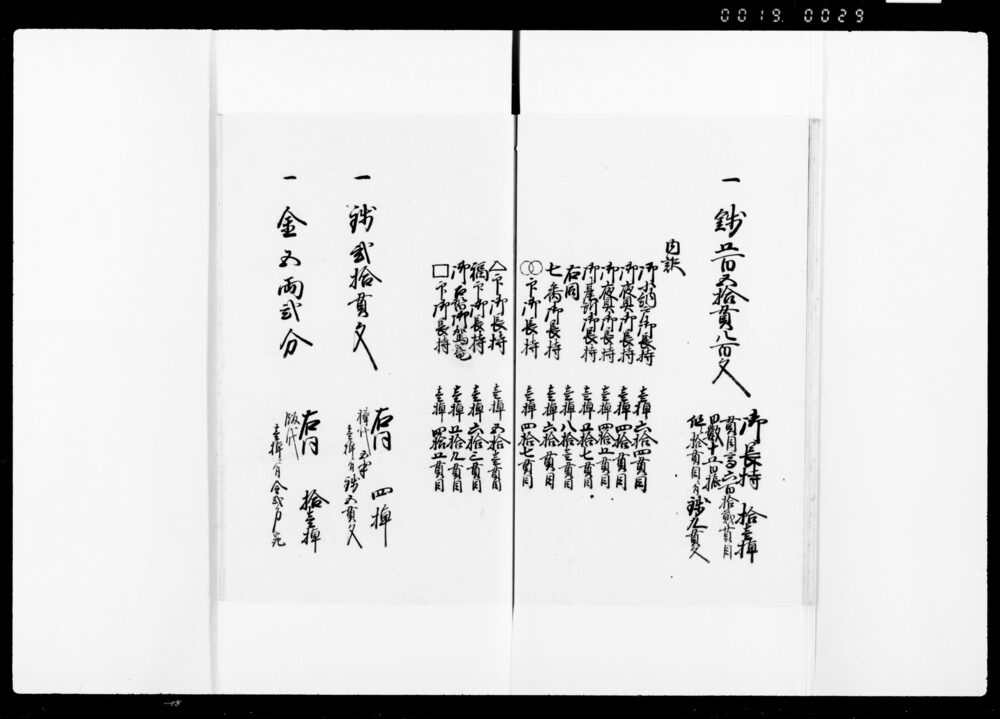 0019 0029
一 銭五百五拾貫八百文
御長持 拾壱棹
貫目高六百拾貫目
但拾貫目ニ付銭九貫文
内訳
御長持 壱棹 六拾四貫目
御夜具御長持 壱棹 四拾貫目
御夜具御長持 壱棹 四拾五貫目
御長持 壱棹 五拾七貫目
右同 壱棹 八拾壱貫目
七番御長持 壱棹 六拾貫目
○○下御長持 壱棹 四拾七貫目
△下御長持 壱棹 五拾壱貫目
福下御長持 壱棹 六拾三貫目
御 壱棹 五拾九貫目
□下御長持 壱棹 四拾五貫目
一 銭弐拾貫文
右同 四棹
壱棹ニ付銭五貫文
一 金五両弐分
右同 拾壱棹
壱棹ニ付金弐分宛